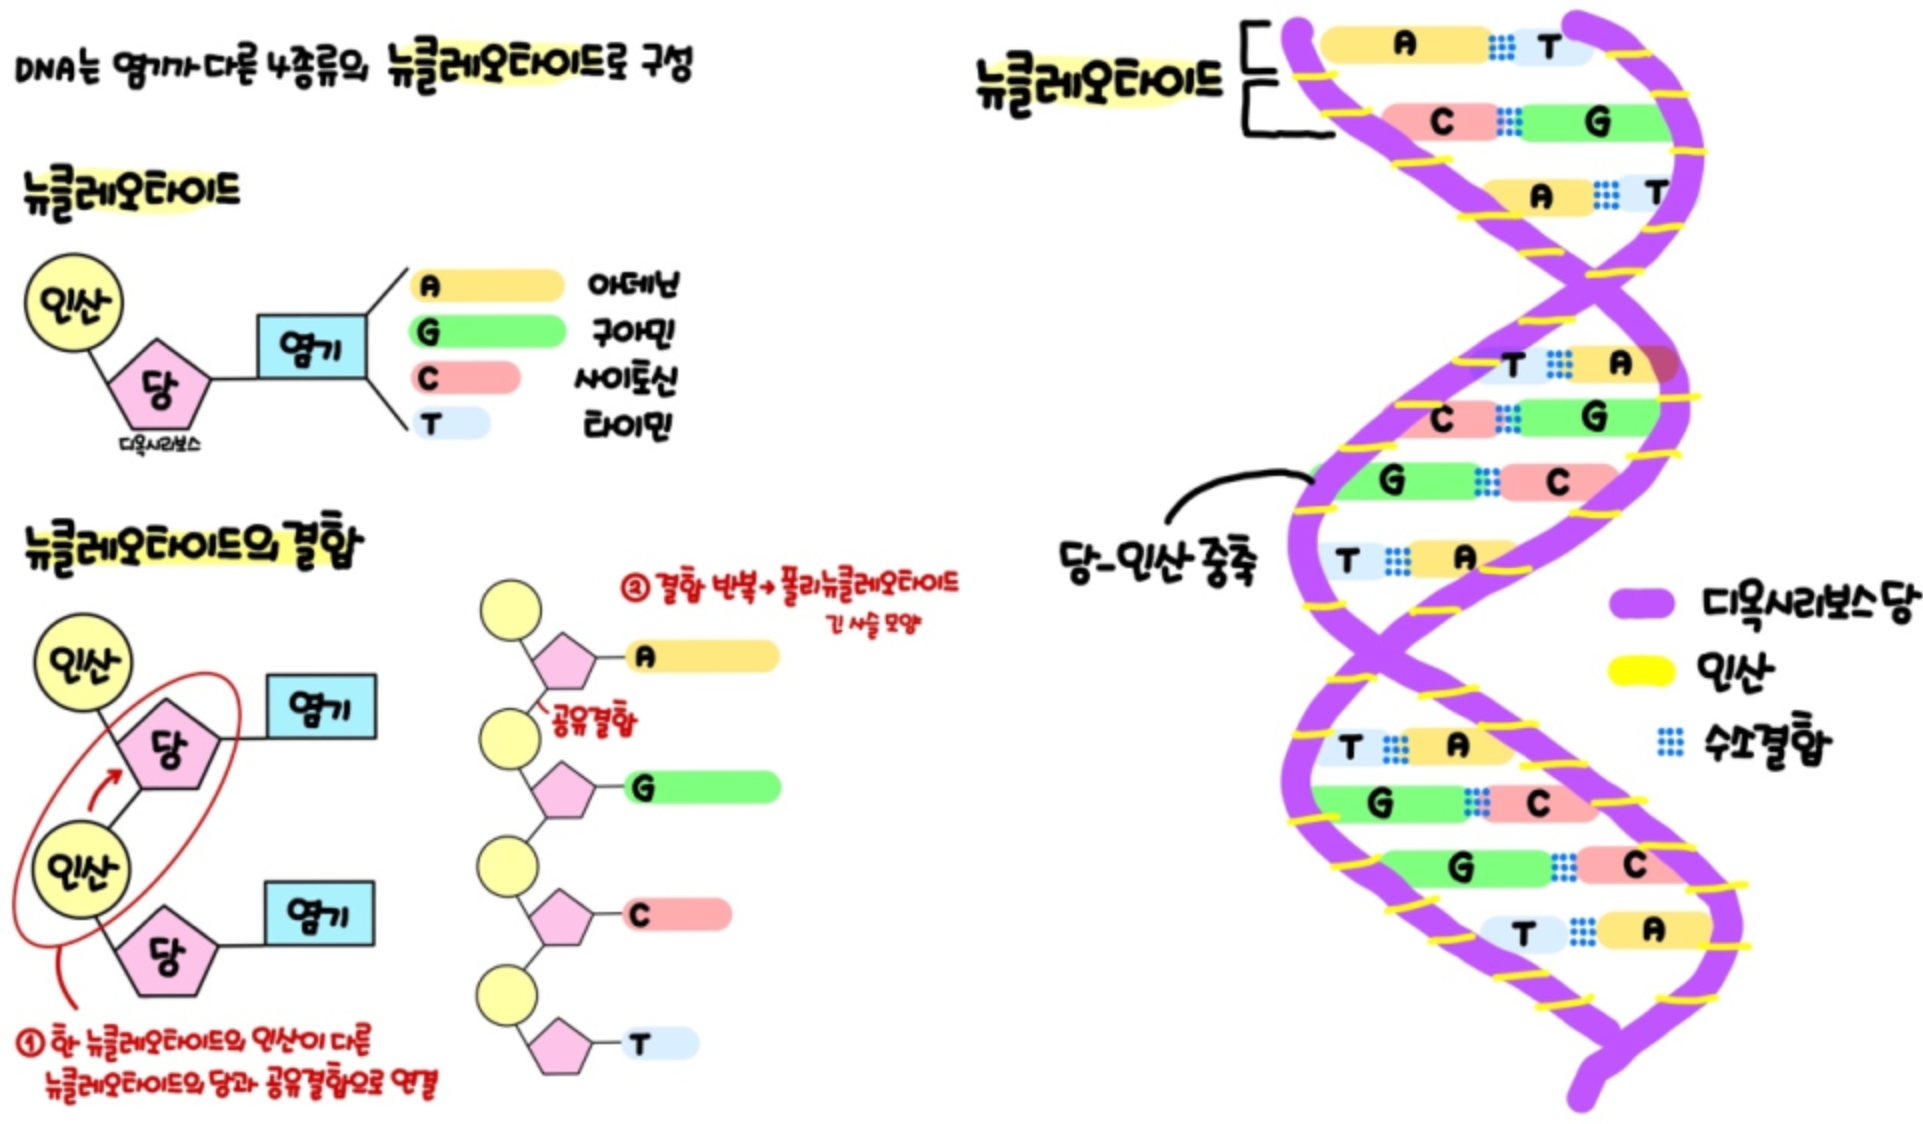 DNA는 염기가 다른 4종류의 뉴클레오타이드로 구성
뉴클레오타이드
인산
당
디옥시리보스
염기
A 아데닌
G 구아민
C 사이토신
T 타이민
뉴클레오타이드의 결합
인산
당
염기
인산
당
염기
① 한 뉴클레오타이드의 인산이 다른
뉴클레오타이드의 당과 공유결합으로 연결
② 결합 반복→ 폴리뉴클레오타이드
긴 사슬 모양
A
공유결합
G
C
T
뉴클레오타이드
A T
C G
A T
T A
C G
G C
T A
당-인산 중축
T A
G C
G C
T A
디옥시리보스당
인산
수소결합